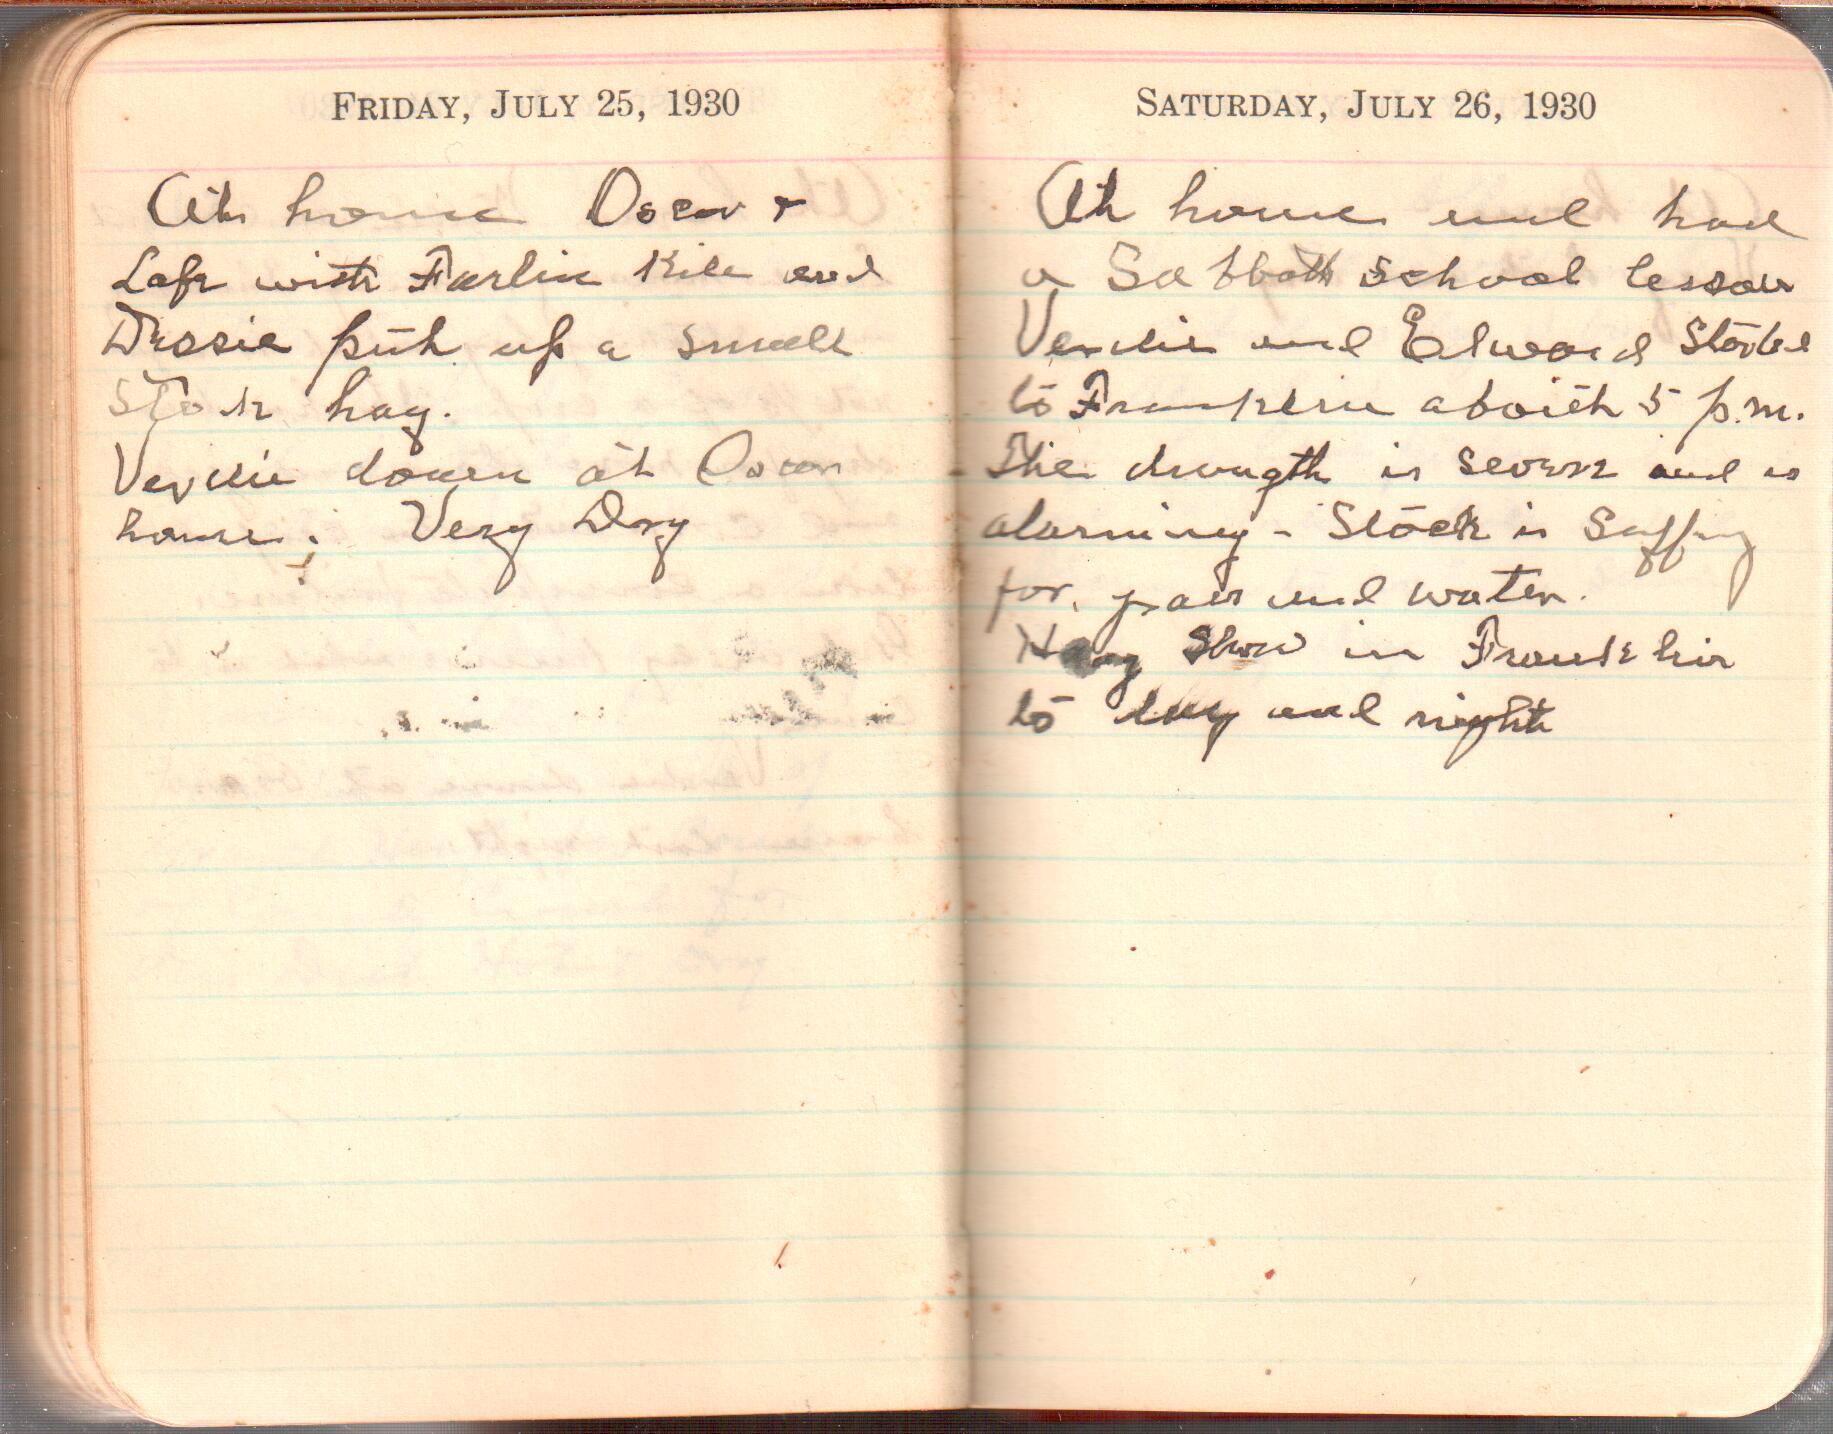 FRIDAY, JULY 25, 1930
At home Oscar &
Lafe with Farlin Kile and
Dessie put up a small
Stock hay.
Verdie down at Oscar
home; Very Dry
SATURDAY, JULY 26, 1930
At home and had
a Sabbath School lesson
Verdie and Edward Started
to Franklin about 5 p.m.
The drougth is severe and is
alarming - Stock is Suffing
for, grass and water.
Show in Franklin
to day and night